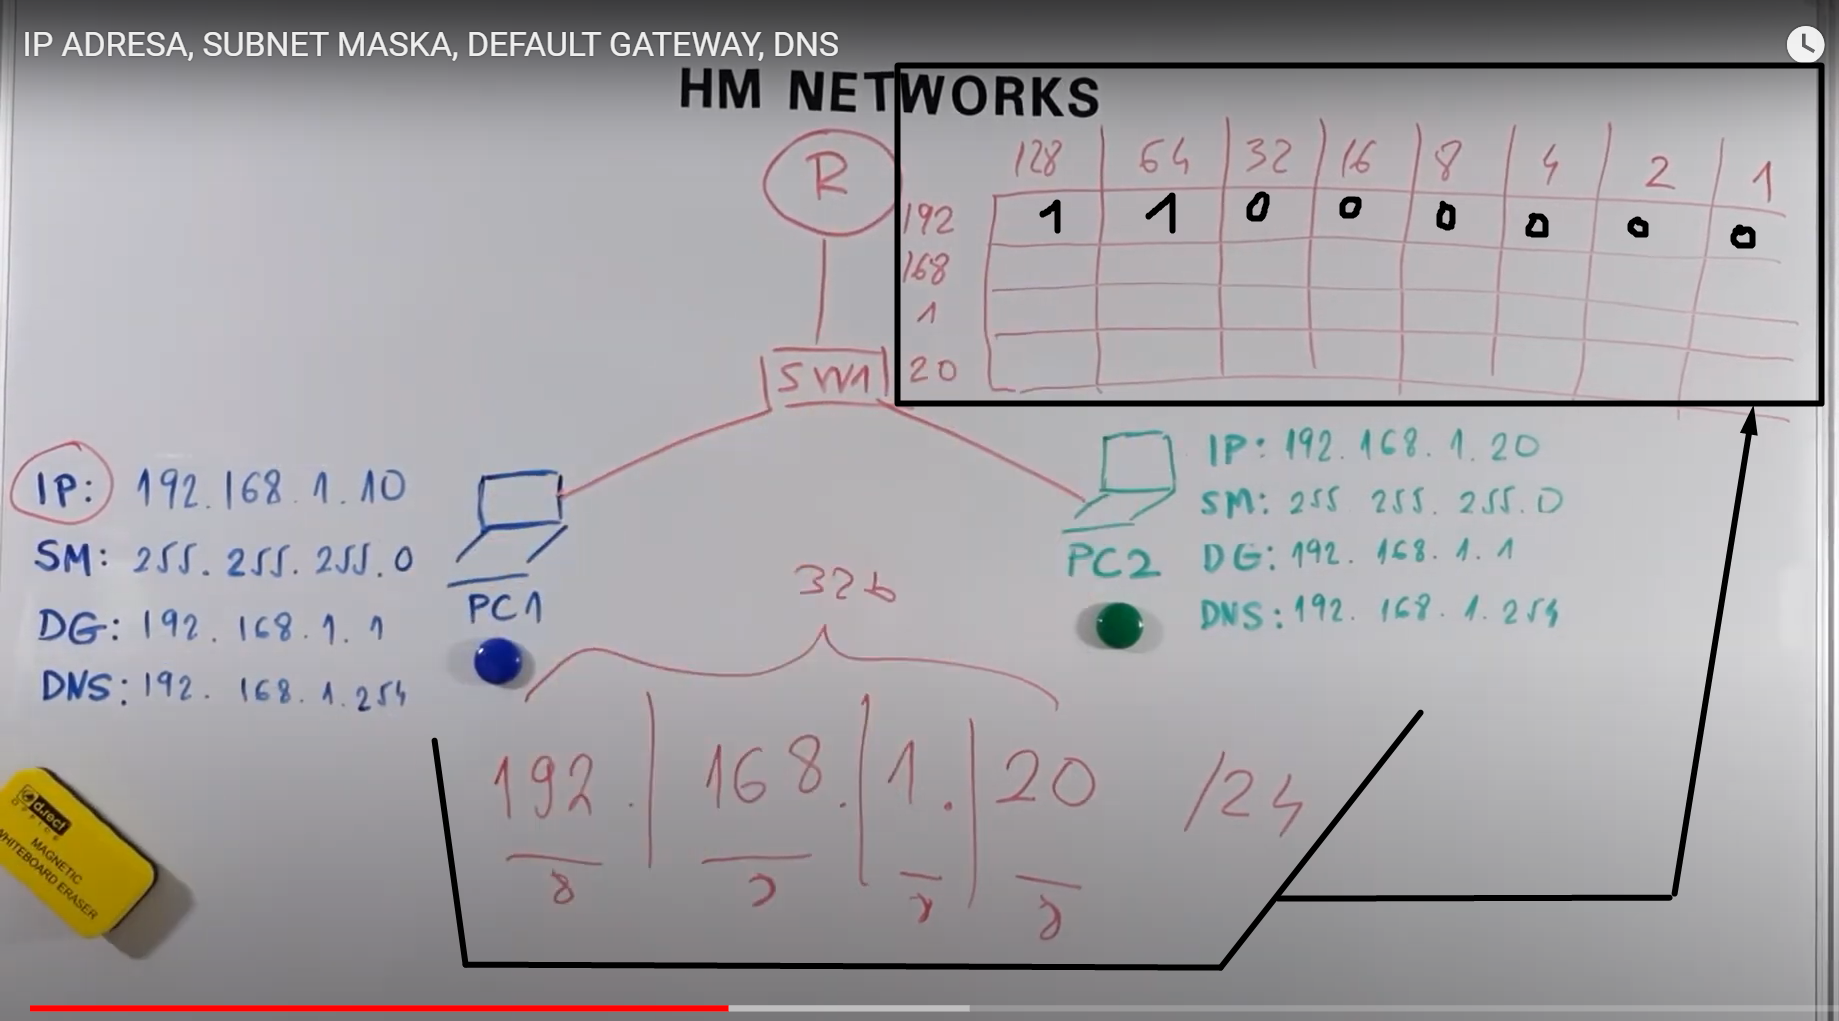 IP ADRESA, SUBNET MASKA, DEFAULT GATEWAY, DNS
HM NETWORKS
R
SW1
128 64 32 16 8 4 2 1
192 1 1 0 0 0 0 0 0
168
1
20
IP: 192.168.1.10
SM: 255.255.255.0
DG: 192.168.1.1
DNS: 192.168.1.254
PC1
IP: 192.168.1.20
SM: 255 255.255.0
DG: 192.168.1.1
DNS: 192.168.1.254
PC2
32b
192.168.1.20 /24
8
d.rect
OFFICE
MAGNETIC
WHITEBOARD ERASER